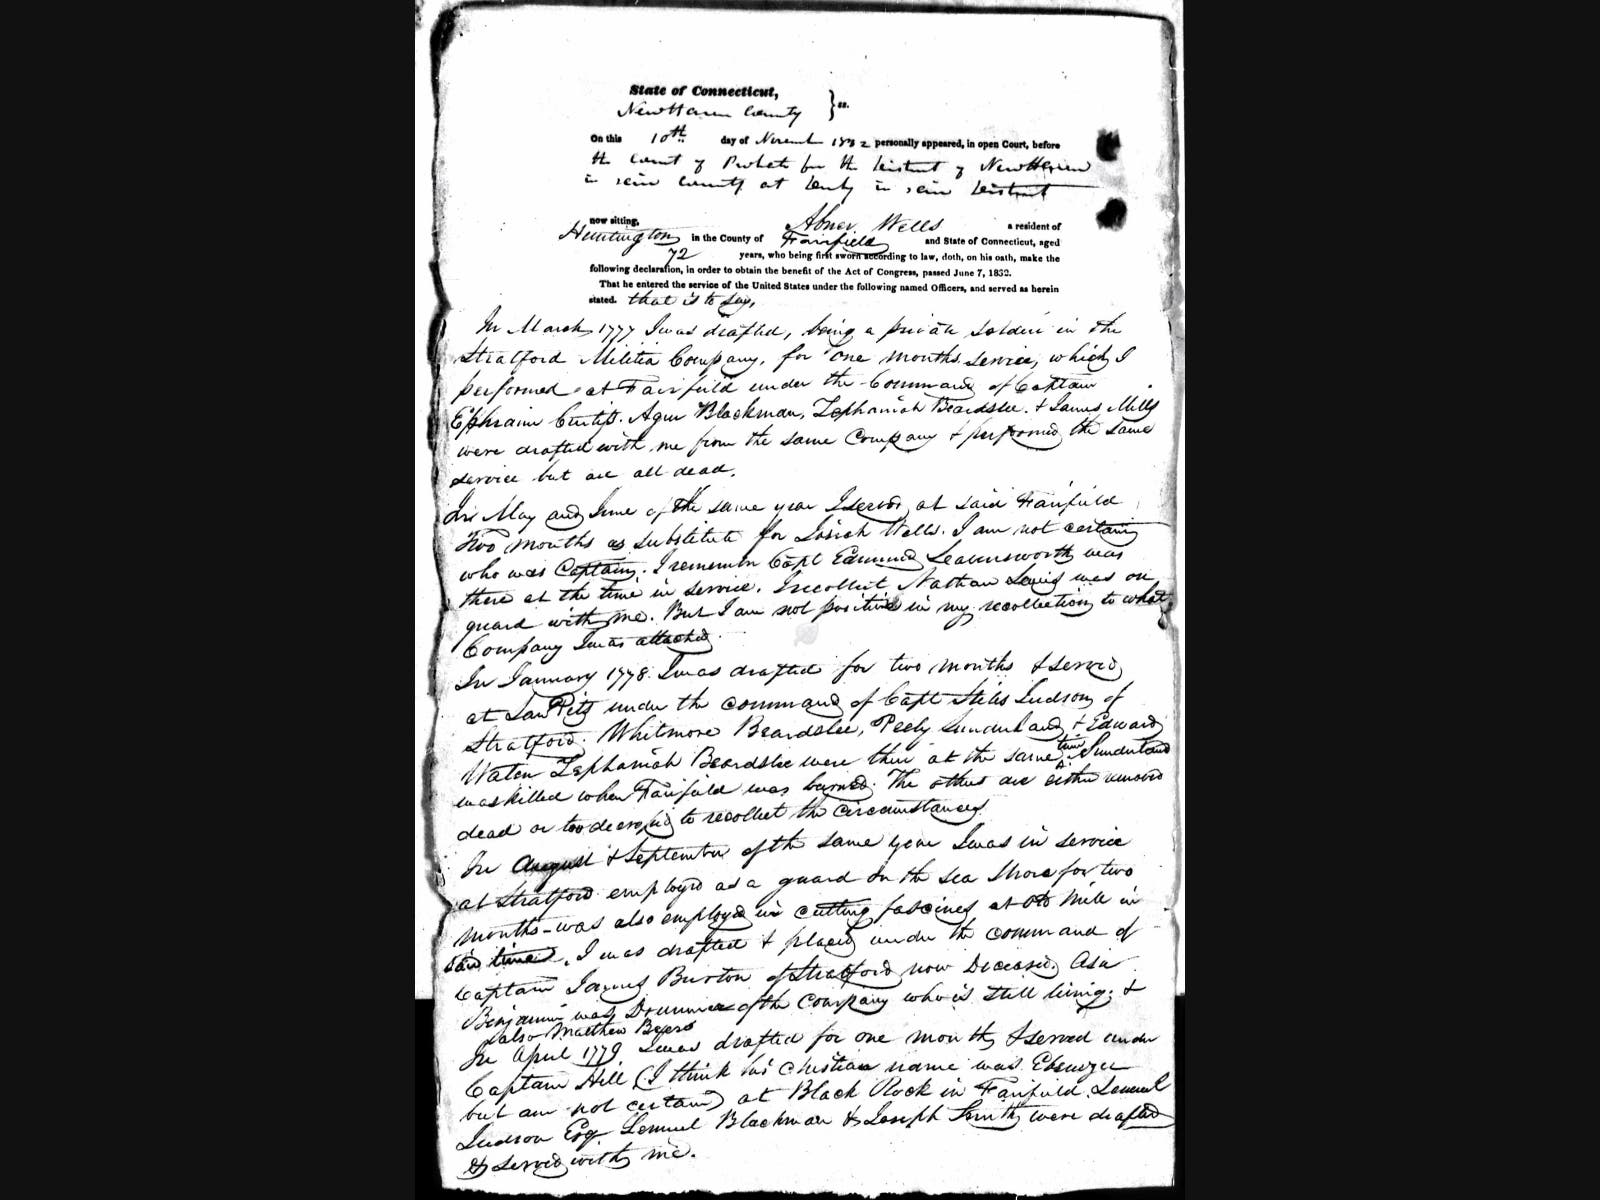 State of Connecticut,
New Haven County } ss.
On this 10th day of Novemb 1832 personally appeared, in open Court, before
the Court of Probate for the District of New Haven
in said County at Derby in said District
now sitting, Abner Wells a resident of
Huntington in the County of Fairfield and State of Connecticut, aged
72 years, who being first sworn according to law, doth, on his oath, make the
following declaration, in order to obtain the benefit of the Act of Congress, passed June 7, 1832.
That he entered the service of the United States under the following named Officers, and served as herein
stated. that is to say,
In March 1777 I was drafted, being a private soldier in the
Stratford Militia Company, for one months service, which I
performed at Fairfield under the Command of Captain
Ephraim Curtiss. Agur Blackman, Zephaniah Beardslee. & James Mills
were drafted with me from the same Company & performed the same
service but are all dead.
In May and June of the same year I served at said Fairfield
Two months as substitute for Josiah Wells. I am not certain
who was Captain. I remember Capt Edmund Leavensworth was
there at the time in service. I recollect Nathan Lewis was on
guard with me. But I am not positive in my recollection to what
Company I was attached.
In January 1778 I was drafted for two months & served
at Saw Pitts under the command of Capt Stiles Judson of
Stratford. Whitmore Beardslee, Sunderland & Edward
Zephaniah Beardslee were then at the same time Sunderland
was killed when Fairfield was burned. The others are either removed
dead or too decrepid to recollect the circumstances
In August & September of the same year I was in service
at Stratford employed as a guard on the sea Shore for two
months - was also employed in cutting fascines at Old Mill in
said time. I was drafted & placed under the command of
Captain James Burton of Stratford now Deceased. Asa
Benjamin was Drummer of the Company who is still living. &
also Matthew Beers
In April 1779 I was drafted for one month & served under
Captain Hill (I think his Christian name was Ebenezer
but am not certain) at Black Rock in Fairfield. Lemuel
Judson Esq Lemuel Blackman & Joseph Smith were drafted
& served with me.